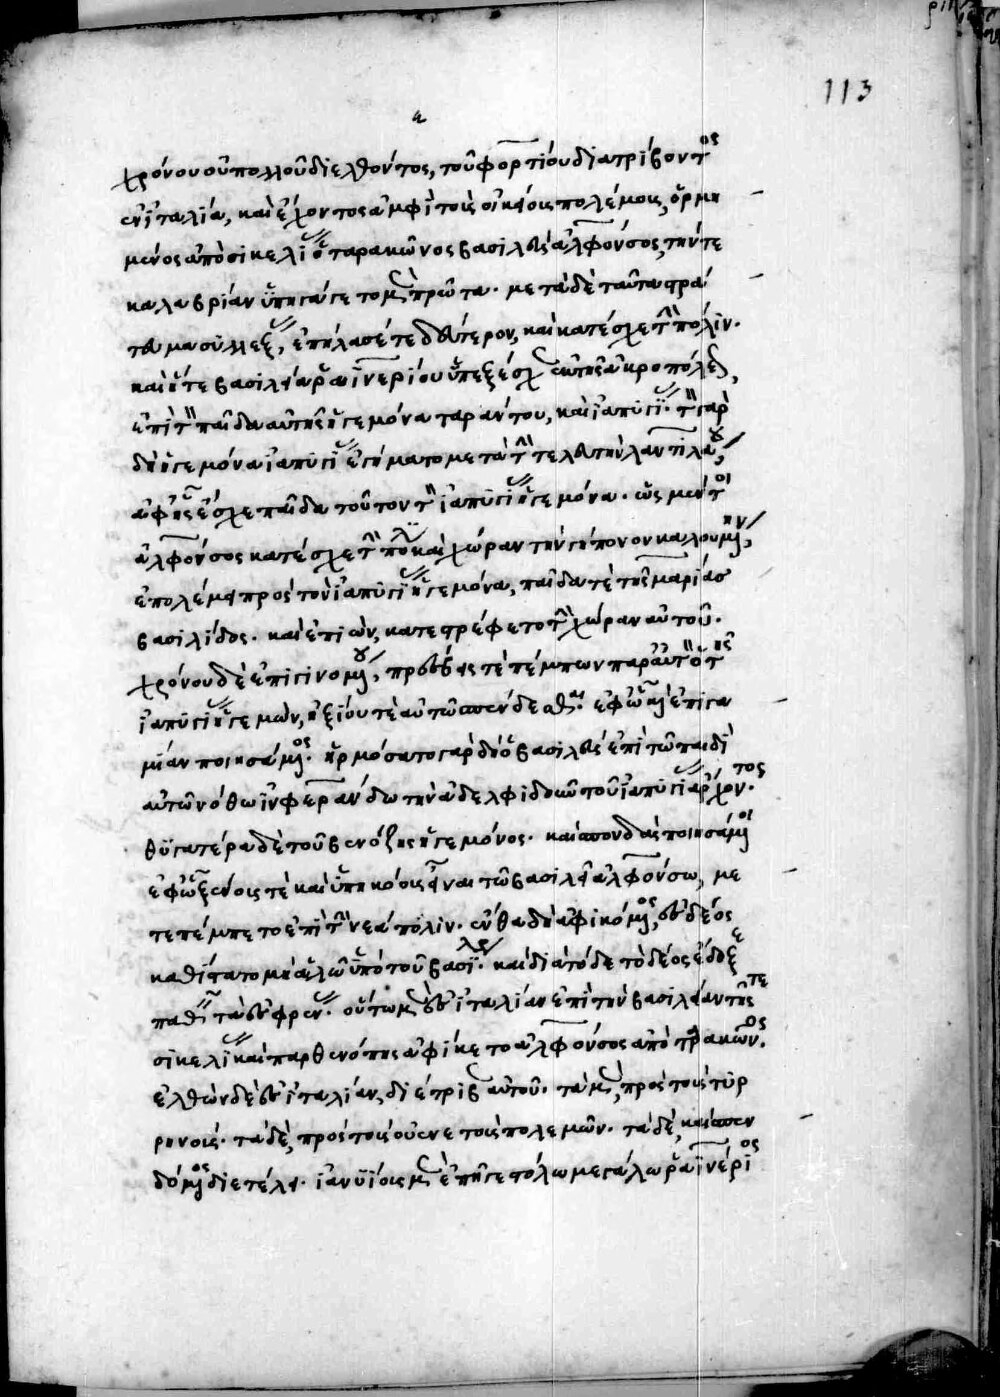 113
χρόνου οὐ πολλοῦ διελθόντος, τοῦ φορτίου διατρίβοντος
ἐν ἰταλία, καὶ ἔχοντος ἀμφὶ τοὺς οἰκείους πολέμους, ὁρμη
μένος ἀπὸ σικελίας ὁ ταρακῶνος βασιλεὺς ἀλφόνσος, τήν τε
καλαβρίαν ὑπηγάγετο μὲν πρῶτα. μετὰ δὲ ταῦτα στρά
τευμα συλλέξας, ἐπήλασέ τε δεύτερον, καὶ κατέσχε τὴν πόλιν.
καὶ ἥ τε βασίλεια ῥαϊνερίου ὑπεξέσχε ἐκ τῆς ἀκροπόλεως,
ἐπὶ τὸν παῖδα αὐτῆς ἡγεμόνα ταράντου, καὶ ἰαπυγίας. τὸν γὰρ
δὴ ἡγεμόνα ἰαπυγίας ἐγήματο μετὰ τὴν τελευτὴν λαντίλαου,
ἀφ' ἧς ἔσχε παῖδα τοῦτον τὸν ἰαπυγίας ἡγεμόνα. ὡς μέντοι
ἀλφόνσος κατέσχε τὴν πόλιν καὶ χώραν τὴν γήπονον καλουμένην,
ἐπολέμει πρὸς τὸν ἰαπυγίας ἡγεμόνα, παῖδα τε τῆς μαρίας
βασιλίδος. καὶ ἐπιὼν, κατεστρέφετο τὴν χώραν αὐτοῦ.
χρόνου δὲ ἐπιγινομένου, πρέσβεις τε πέμπων παρ' αὐτὸν ὁ τῆς
ἰαπυγίας ἡγεμὼν, ἠξίου τε αὐτῶ σπένδεσθαι ἐφ' ᾧ καὶ ἐπιγα
μίαν ποιησάμενος. ἡρμόσατο γὰρ δὴ ὁ βασιλεὺς ἐπὶ τῶ παιδὶ
αὐτῶ νόθω ἰνφεράνδω τὴν ἀδελφιδοῦν τοῦ ἰαπυγίας ἄρχοντος.
θυγατέρα δὲ τοῦ βενόζης ἡγεμόνος. καὶ σπονδὰς ποιησάμενοι
ἐφ' ᾧ ξένοις τε καὶ ὑπηκόοις εἶναι τῶ βασιλεῖ ἀλφόνσω, με
τεπέμπετο ἐπὶ τὴν νεάπολιν. ἔνθα δὴ ἀφικόμενος, ἐς δέος
καθίστατο μὴ ἁλῶ ὑπὸ τοῦ βασιλέως. καὶ διὰ τόδε τὸ δέος ἔδοξε
παθεῖν τὰς φρένας. οὕτω μὲν ἐς ἰταλίαν ἐπὶ τὴν βασιλείαν τῆς τε
σικελίας καὶ παρθενόπης ἀφίκετο ἀλφόνσος ἀπὸ ταρακῶνος.
ἐλθὼν δὲ ἐς ἰταλίαν, διέτριβεν αὐτοῦ. τὰ μὲν, πρὸς τοὺς τυρ
ρηνούς. τὰ δὲ, πρὸς τοὺς οὐενετοὺς πολεμῶν. τὰ δὲ, καὶ σπεν
δόμενος διετέλει. ἰανυΐοις μὲν ἐπῆγε στόλω μεγάλω ῥαϊνέριος